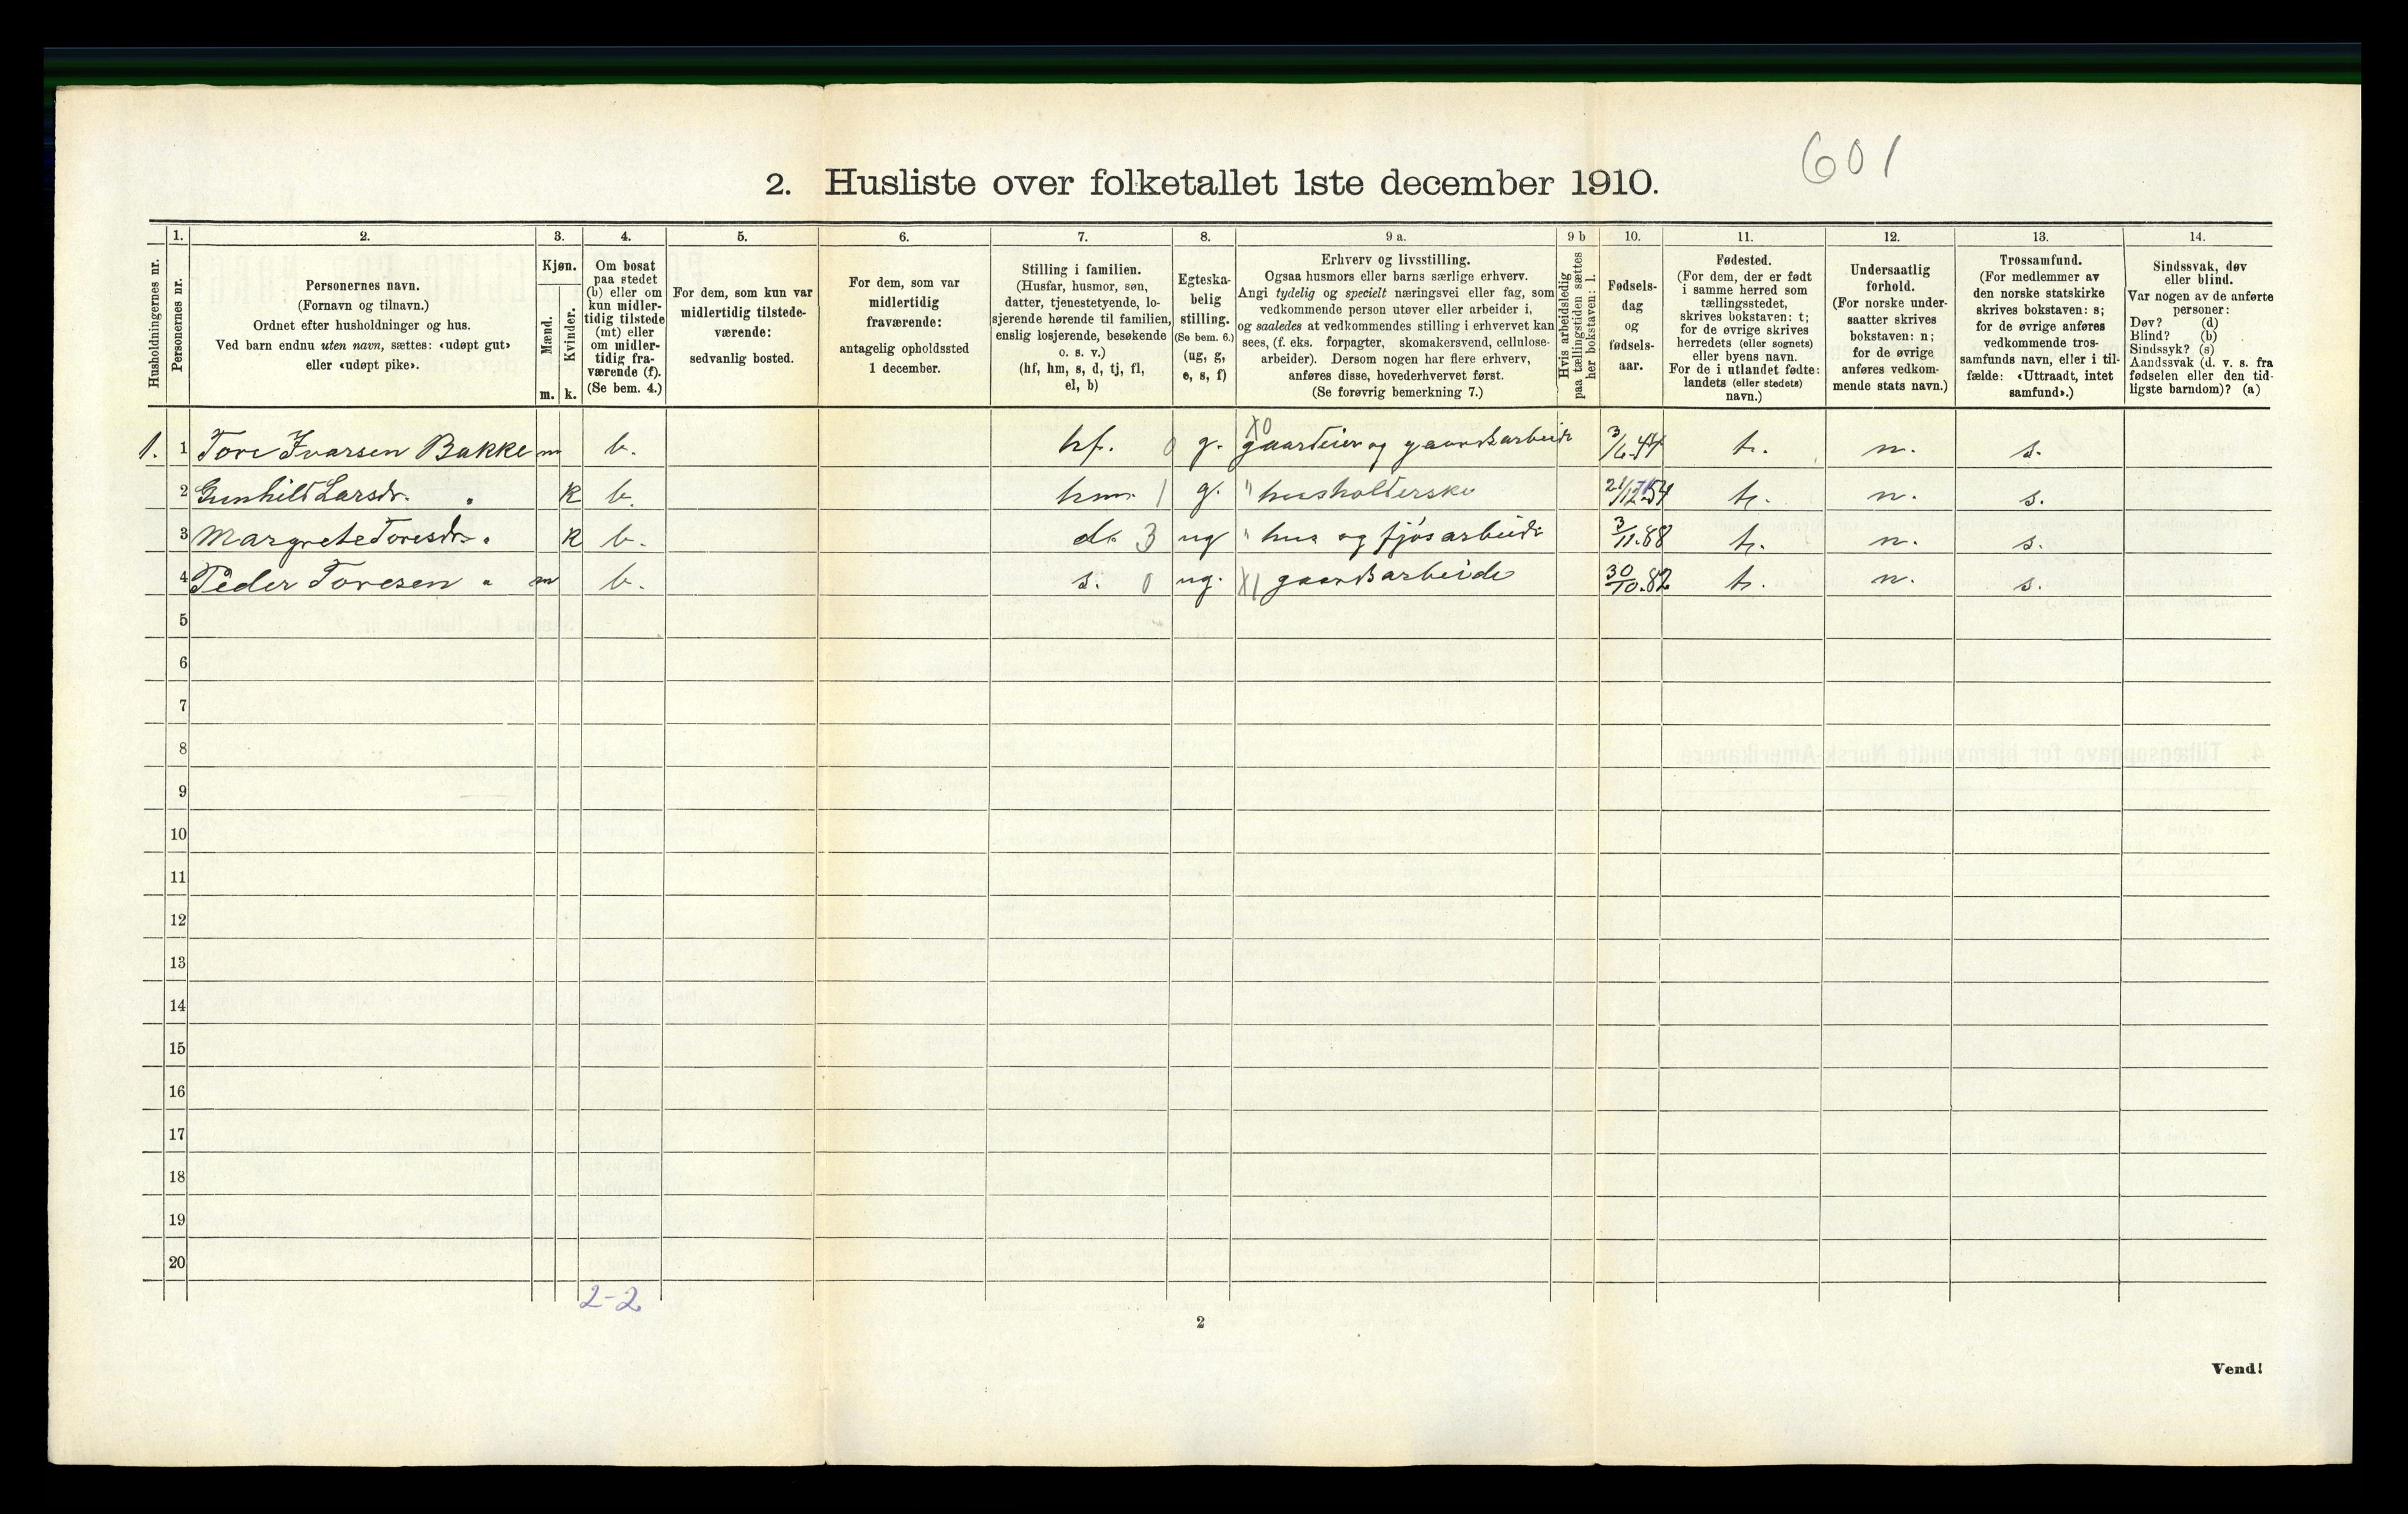 601
2. Husliste over folketallet 1ste december 1910.
Husholdningernes nr.
1.
Personernes nr.
2.
Personernes navn.
(Fornavn og tilnavn.)
Ordnet efter husholdninger og hus.
Ved barn endnu uten navn, sættes: «udøpt gut»
eller «udøpt pike».
3.
Kjøn.
Mænd.
Kvinder.
m. k.
4.
Om bosat
paa stedet
(b) eller om
kun midler-
tidig tilstede
(mt) eller
om midler-
tidig fra-
værende (f).
(Se bem. 4.)
5.
For dem, som kun var
midlertidig tilstede-
værende:
sedvanlig bosted.
6.
For dem, som var
midlertidig
fraværende:
antagelig opholdssted
1 december.
7.
Stilling i familien.
(Husfar, husmor, søn,
datter, tjenestetyende, lo-
sjerende hørende til familien,
enslig losjerende, besøkende
o. s. v.)
(hf, hm, s, d, tj, fl,
el, b)
8.
Egteska-
belig
stilling.
(Se bem. 6.)
(ug, g,
e, s, f)
9 a.
Erhverv og livsstilling.
Ogsaa husmors eller barns særlige erhverv.
Angi tydelig og specielt næringsvei eller fag, som
vedkommende person utøver eller arbeider i,
og saaledes at vedkommendes stilling i erhvervet kan
sees, (f. eks. forpagter, skomakersvend, cellulose-
arbeider). Dersom nogen har flere erhverv,
anføres disse, hovederhvervet først.
(Se forøvrig bemerkning 7.)
9 b
Hvis arbeidsledig
paa tællingstiden sættes
her bokstaven: l.
10.
Fødsels-
dag
og
fødsels-
aar.
11.
Fødested.
(For dem, der er født
i samme herred som
tællingsstedet,
skrives bokstaven: t;
for de øvrige skrives
herredets (eller sognets)
eller byens navn.
For de i utlandet fødte:
landets (eller stedets)
navn.)
12.
Undersaatlig
forhold.
(For norske under-
saatter skrives
bokstaven: n;
for de øvrige
anføres vedkom-
mende stats navn.)
13.
Trossamfund.
(For medlemmer av
den norske statskirke
skrives bokstaven: s;
for de øvrige anføres
vedkommende tros-
samfunds navn, eller i til-
fælde: «Uttraadt, intet
samfund».)
14.
Sindssvak, døv
eller blind.
Var nogen av de anførte
personer:
Døv? (d)
Blind? (b)
Sindssyk? (s)
Aandssvak (d. v. s. fra
fødselen eller den tid-
ligste barndom)? (a)
X0
1. 1 Tore Ivarsen Bakke m b. hf. 0 g. gaardeier og gaardsarbeide 3/6.44 t. n. s.
2 Gunhild Larsdr. " k b. hm. 1 g. " husholderske 21/12.54 t. n. s.
3 Margrete Toresdr. " k b. d. 3 ug " hus og fjøsarbeide 3/11.88 t. n. s.
4 Peder Toresen " m b. s. 0 ug. X1 gaardsarbeide 30/10.82 t. n. s.
5
6
7
8
9
10
11
12
13
14
15
16
17
18
19
20
2-2
2
Vend!